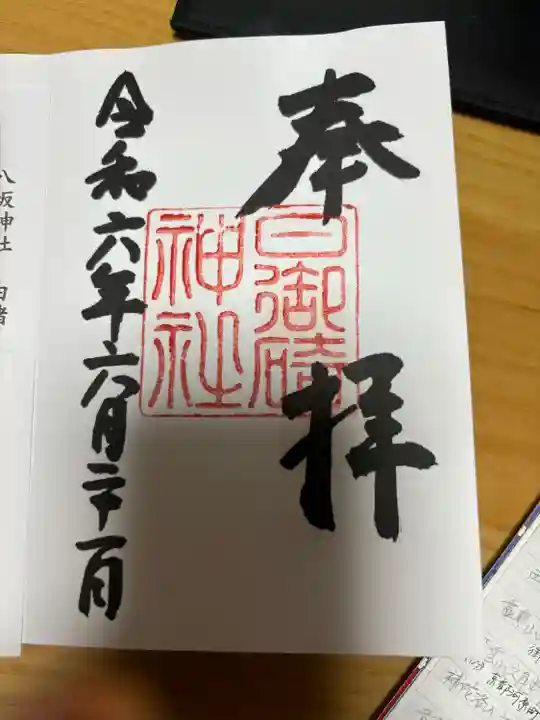 奉拝
日御碕
神社
令和六年六月二十一日
八坂神社